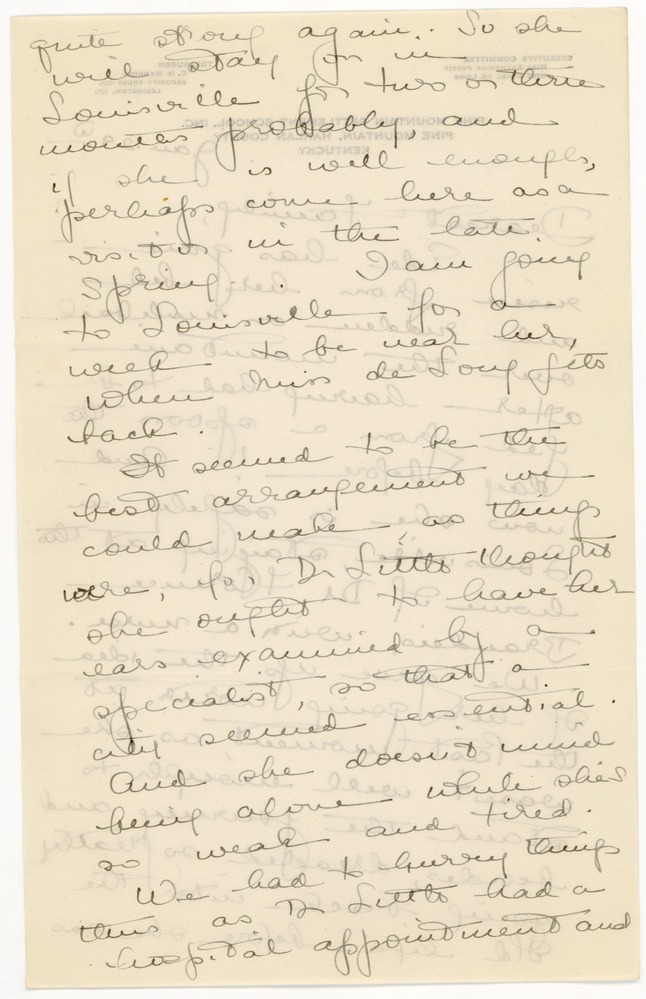 quite strong again. So she
will stay on in
Louisville for two or three
months probably, and
if she is well enough,
perhaps come here as a
visitor in the late
Spring. I am going
to Louisville for a
week to be near her,
when Miss de Long gets
back.
It seemed to be the
best arrangement we
could make, as things
were, for Dr Little thought
she ought to have her
ears examined by a
specialist, so that a
city seemed essential.
And she doesn't mind
being alone while she's
so weak and tired.
We had to hurry things
thus as Dr Little had a
hospital appointment and